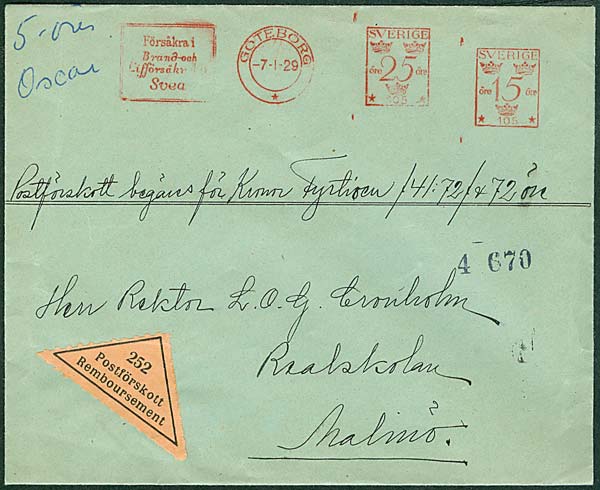 5-öres
Oscar
Försäkra i
Brand-och
Lifförsäkr
Svea
GÖTEBORG
-7-1-29
SVERIGE
öre 25 öre
105
SVERIGE
öre 15 öre
105
Postförskott begäres för Kronor Fyrtioen /41:72/ & 72 öre
4 670
Herr Rektor L.O.G. Cronholm
Realskolan
Malmö.
252
Postförskott
Remboursement